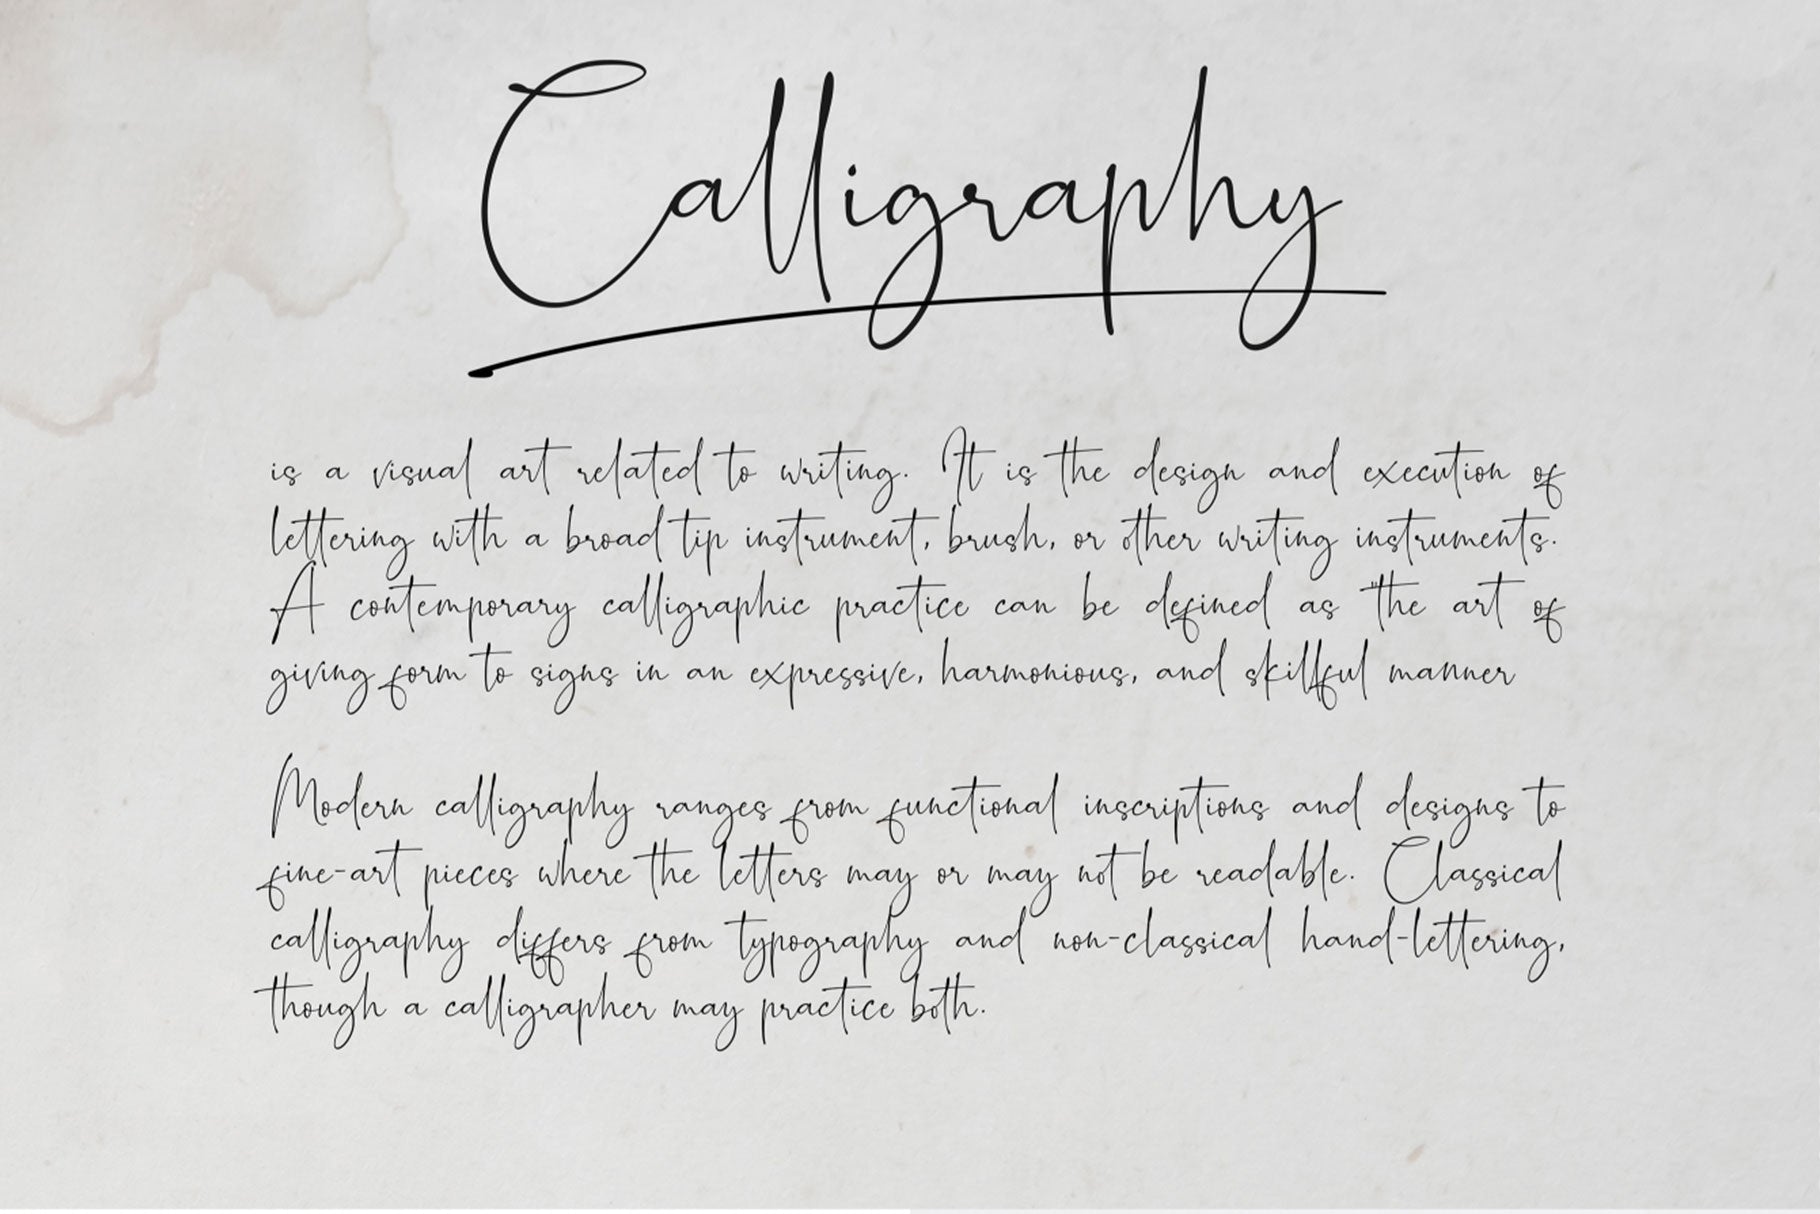 Calligraphy
is a visual art related to writing. It is the design and execution of
lettering with a broad tip instrument, brush, or other writing instruments.
A contemporary calligraphic practice can be defined as "the art of
giving form to signs in an expressive, harmonious, and skillful manner
Modern calligraphy ranges from functional inscriptions and designs to
fine-art pieces where the letters may or may not be readable. Classical
calligraphy differs from typography and non-classical hand-lettering,
though a calligrapher may practice both.